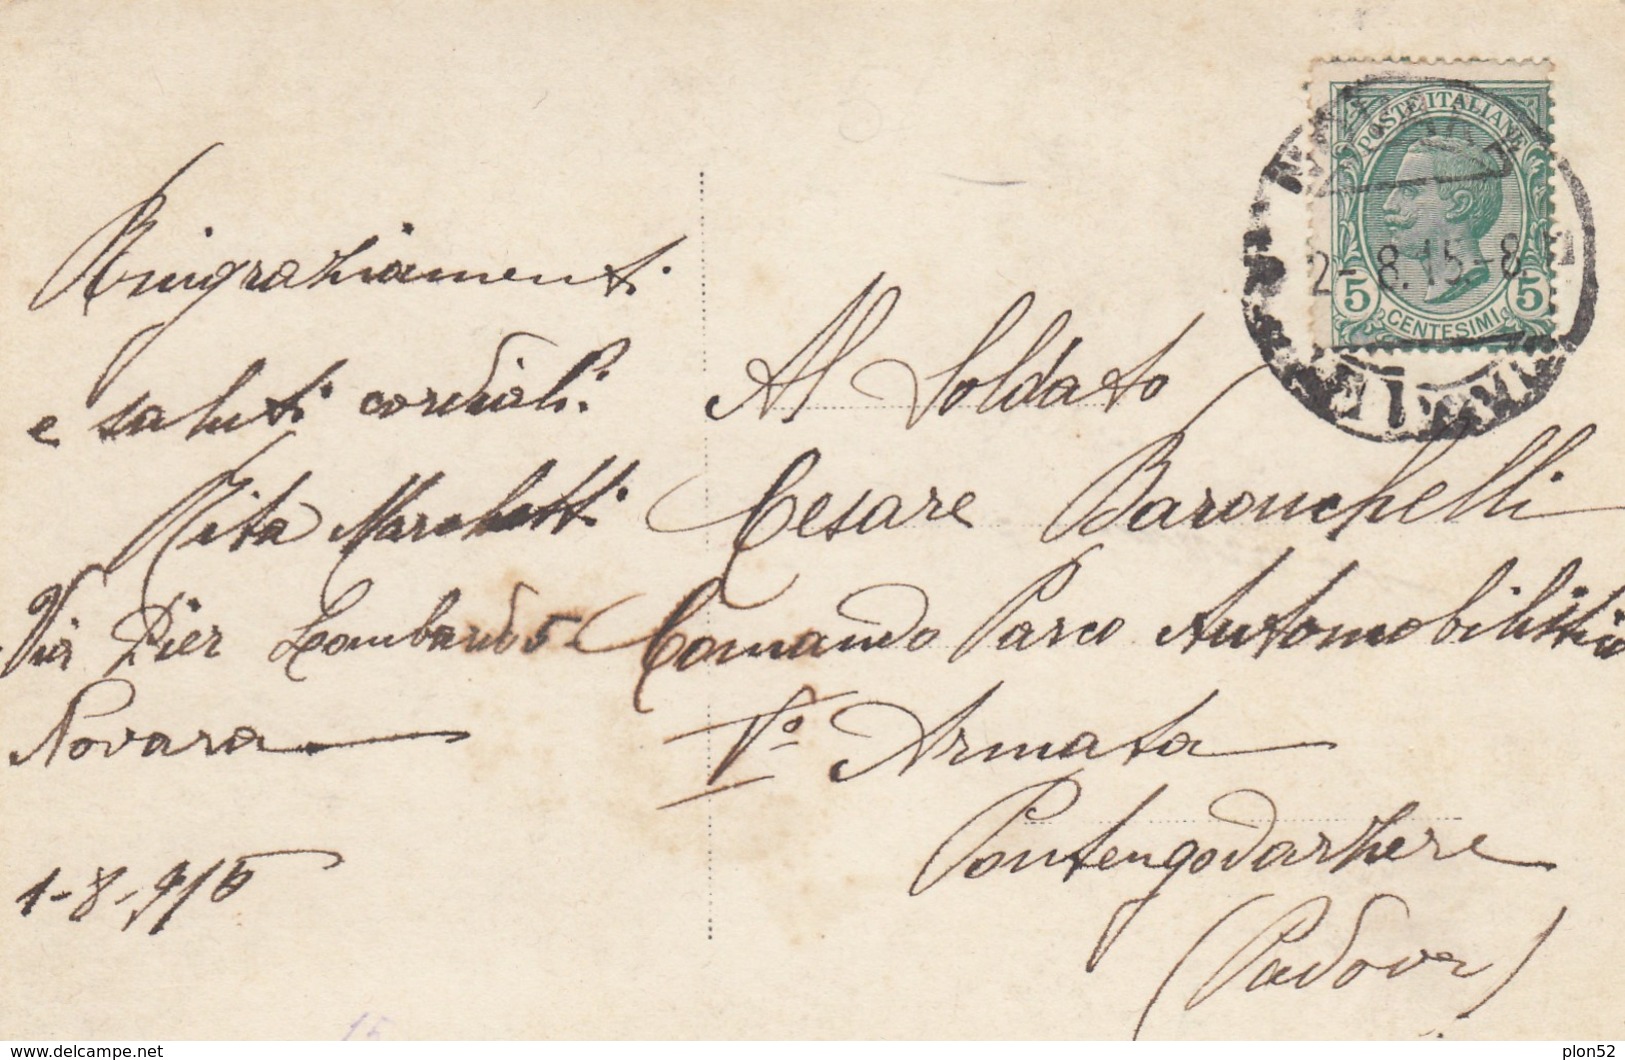 Ringraziamenti
e saluti cordiali.
Rita Marchetti
Via Pier Lombardo 5
Novara
1-8-915
POSTE ITALIANE
5 5
CENTESIMI
2-8.15.-8
Al Soldato
Cesare Baronchelli
Comando Parco Automobilistico
Vª Armata
Pontengodarzere
(Padova)
15
plon52